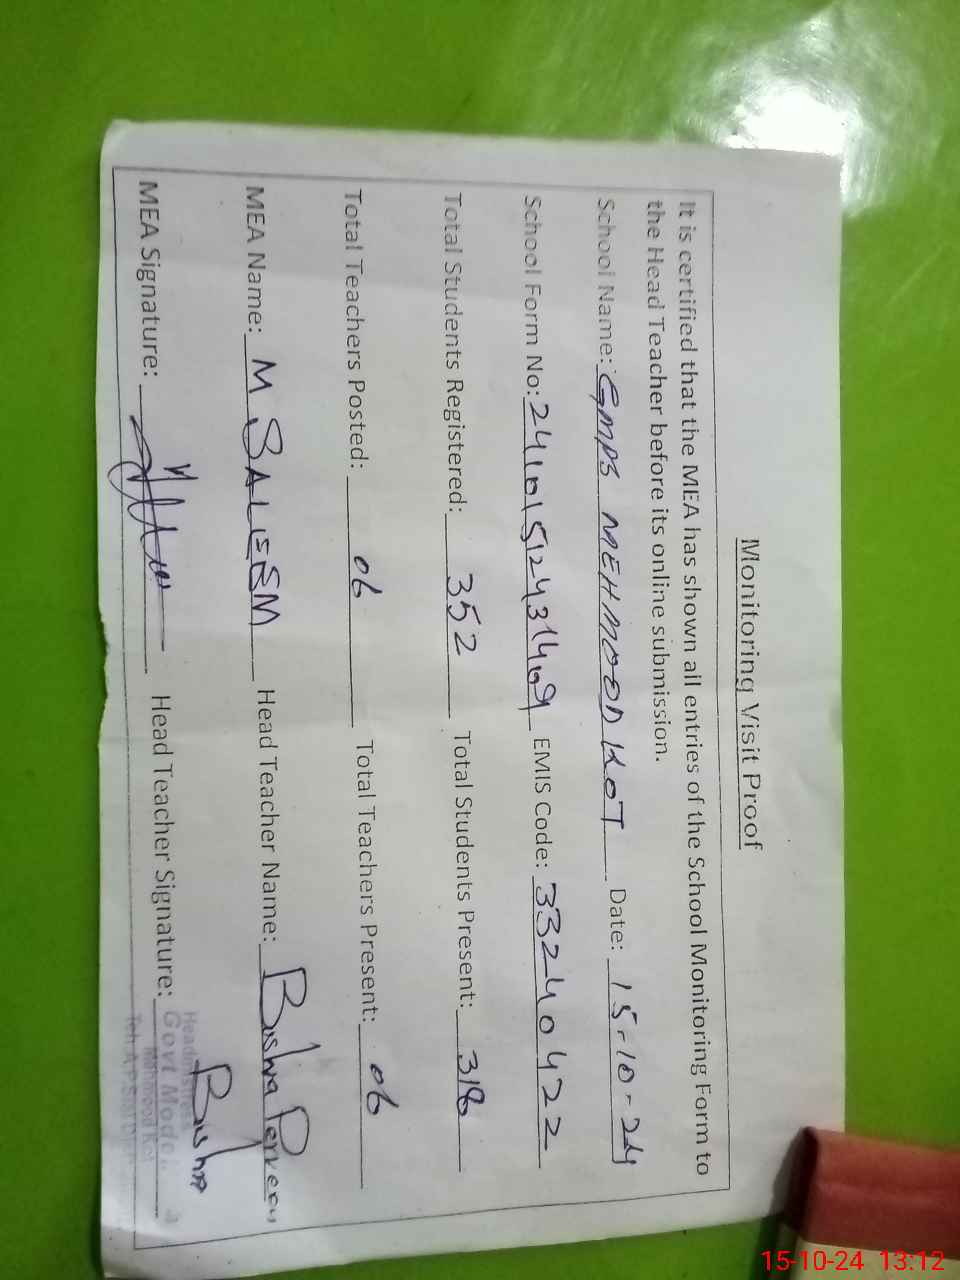 Monitoring Visit Proof
It is certified that the MEA has shown all entries of the School Monitoring Form to
the Head Teacher before its online submission.
School Name: GMPS MEHMOOD KOT Date: 15-10-24
School Form No: EMIS Code: 33240422
Total Students Registered: 352 Total Students Present: 318
Total Teachers Posted: 06 Total Teachers Present: 06
MEA Name: M SALEEM Head Teacher Name: Bushra Perveen
MEA Signature: Head Teacher Signature: Bushra
Headmistress
Govt Model
Mahmood Kot
15-10-24 13:12